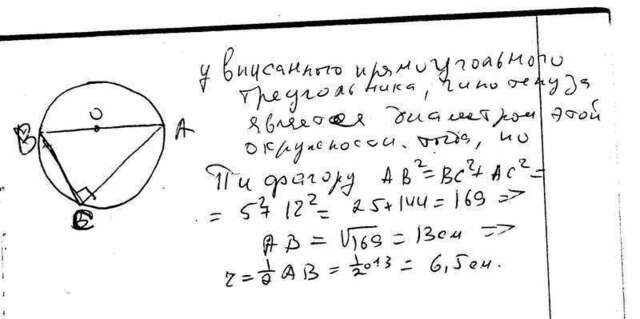 у вписанного прямоугольного
треугольника, гипотенуза
является диаметром этой
окружности. тогда, по
Пифагору AB² = BC² + AC² =
= 5² 12² = 25 + 144 = 169 =>
AB = √169 = 13 см =>
r = 1/2 AB = 1/2 · 13 = 6,5 см.
O
B
A
C